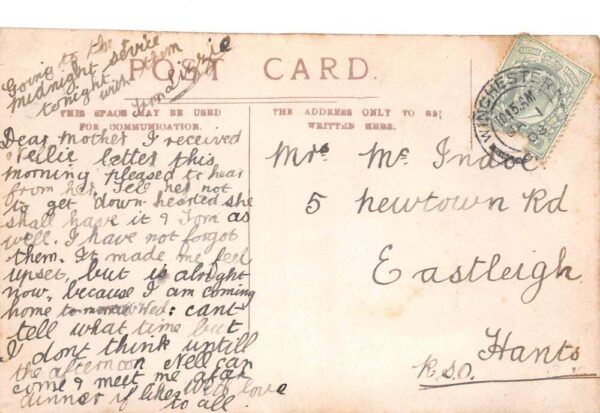 Going to the
midnight service
tonight with them
with
Tom Lizzie
POST CARD.
THIS SPACE MAY BE USED
FOR COMMUNICATION.
THE ADDRESS ONLY TO BE
WRITTEN HERE.
WINCHESTER
10.15 AM
Dear Mother I received
letter this
morning pleased to hear
from her. Tell her not
to get down-hearted she
shall have it & Tom as
well. I have not forgot
them. It made me feel
upset, but is alright
now, because I am coming
home to-morrow Wed: cant
tell what time but
I dont think untill
the afternoon Nell can
come & meet me after
dinner if likes With love
to all.
Mrs Mc Indoe
5 newtown Rd
Eastleigh
Hants
R.S.O.